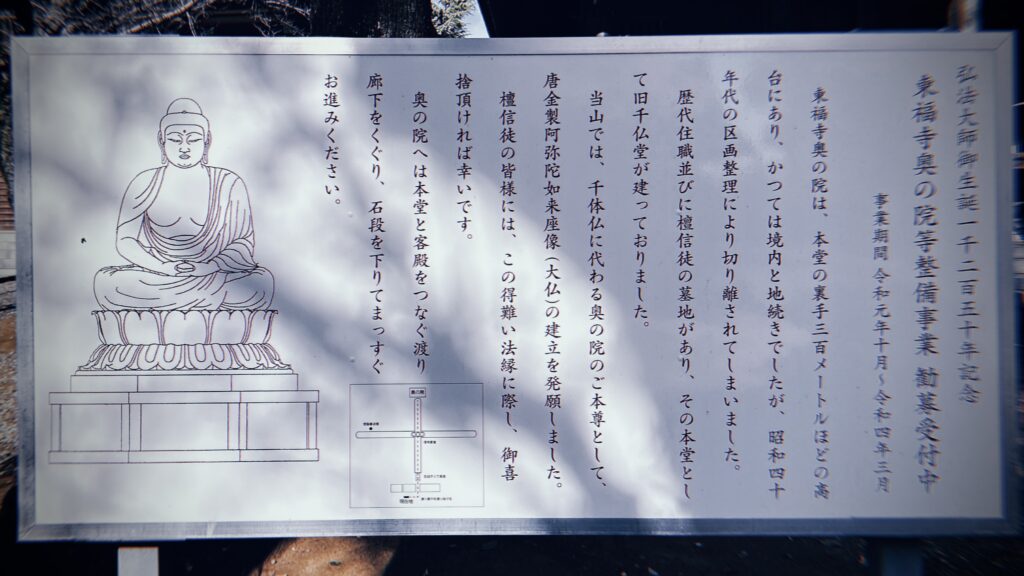 弘法大師御生誕一千二百三十年記念
東福寺奥の院等整備事業 勧募受付中
事業期間 令和元年十月~令和四年三月
東福寺奥の院は、本堂の裏手三百メートルほどの高
台にあり、かつては境内と地続きでしたが、昭和四十
年代の区画整理により切り離されてしまいました。
歴代住職並びに檀信徒の墓地があり、その本堂とし
て旧千仏堂が建っておりました。
当山では、千体仏に代わる奥の院のご本尊として、
唐金製阿弥陀如来座像(大仏)の建立を発願しました。
檀信徒の皆様には、この得難い法縁に際し、御喜
捨頂ければ幸いです。
奥の院へは本堂と客殿をつなぐ渡り
廊下をくぐり、石段を下りてまっすぐ
お進みください。
奥の院
現在地